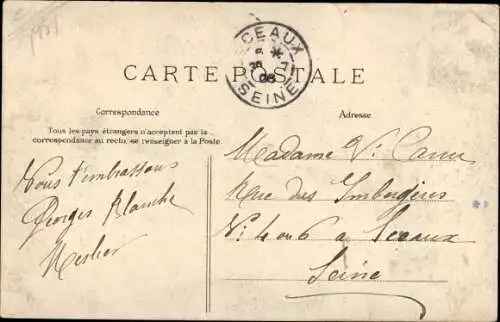 CEAUX
SEINE
08
CARTE POSTALE
Correspondance
Adresse
Tous les pays étrangers n'acceptent pas la
correspondance au recto, se renseigner à la Poste.
Vous t'embrassons
Georges Blanche
Madame Vᵉ
Rue des Imbergères
Nº 4 ou 6 à Sceaux
Seine